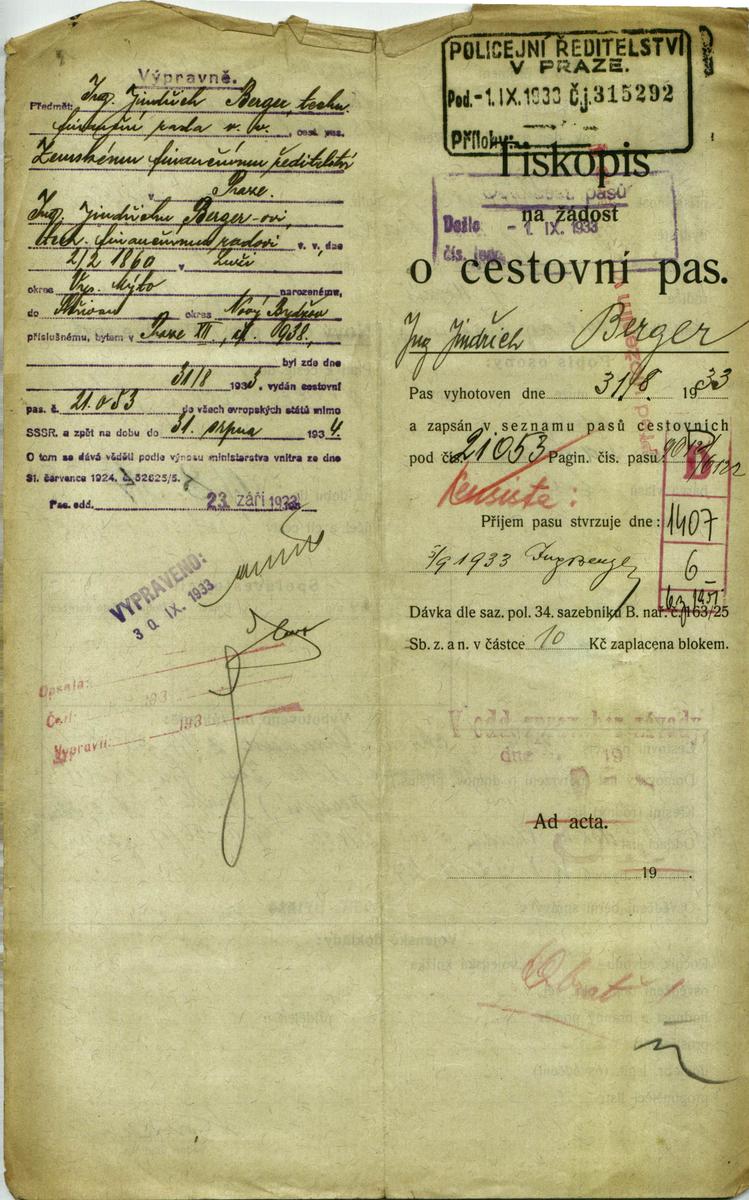 Výpravně.
Předmět: Ing. Jindřich Berger, techn.
finanční rada v. v., cest. pas.
Zemskému finančnímu ředitelství
v Praze.
Ing. Jindřichu Berger-ovi,
techn. finančnímu radovi v. v., dne
2/2 1860 v Luži
okres Vys. Mýto narozenému,
do Skřivan okres Nový Bydžov
příslušnému, bytem v Praze XII, 1938,
byl zde dne
31/8 1933. vydán cestovní
pas. č. 21.053 do všech evropských států mimo
SSSR. a zpět na dobu do 31. srpna 1934.
O tom se dává věděti podle výnosu ministerstva vnitra ze dne
31. července 1924. č. 52625/5.
Pas. odd. 23. září 1933
VYPRAVENO:
30. IX. 1933
Opsala:
Četl: 193
Vypravil: 193
POLICEJNÍ ŘEDITELSTVÍ
V PRAZE.
Pod. -1. IX. 1933 č.j. 315292
Přílohy:
Tiskopis
na žádost
Došlo - 1. IX. 1933
o cestovní pas.
Ing Jindřich Berger
Pas vyhotoven dne 31/8 1933
a zapsán v seznamu pasů cestovních
pod čís. 21053 Pagin. čís. pasu:
B
Příjem pasu stvrzuje dne:
1407
3/9 1933
6
Dávka dle saz. pol. 34. sazebníku B. nař. č. 163/25
Sb. z. a n. v částce 10 Kč zaplacena blokem.
V odd. zprav. bez závady.
dne 19
Ad acta.
19